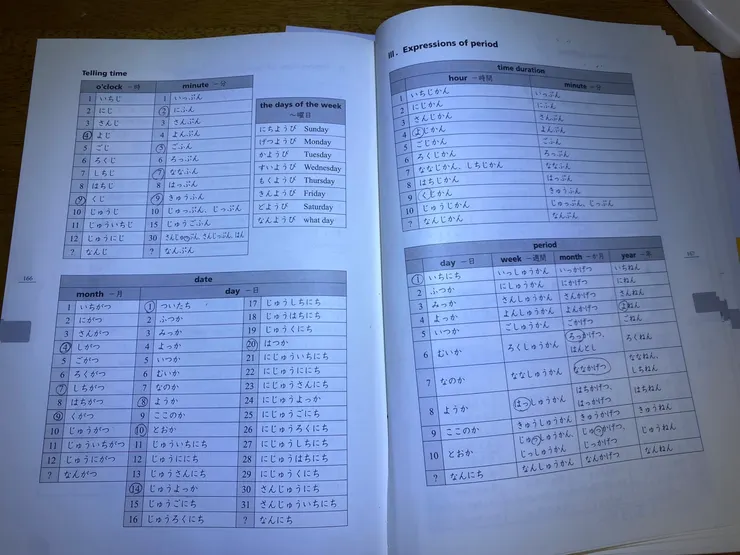 Telling time
o'clock －時 minute －分
1 いちじ 1 いっぷん
2 にじ 2 にふん
3 さんじ 3 さんぷん
4 よじ 4 よんぷん
5 ごじ 5 ごふん
6 ろくじ 6 ろっぷん
7 しちじ 7 ななふん
8 はちじ 8 はっぷん
9 くじ 9 きゅうふん
10 じゅうじ 10 じゅっぷん、じっぷん
11 じゅういちじ 15 じゅうごふん
12 じゅうにじ 30 さんじゅっぷん、さんじっぷん、はん
? なんじ ? なんぷん
the days of the week
～曜日
にちようび Sunday
げつようび Monday
かようび Tuesday
すいようび Wednesday
もくようび Thursday
きんようび Friday
どようび Saturday
なんようび what day
date
month －月 day －日
1 いちがつ 1 ついたち 17 じゅうしちにち
2 にがつ 2 ふつか 18 じゅうはちにち
3 さんがつ 3 みっか 19 じゅうくにち
4 しがつ 4 よっか 20 はつか
5 ごがつ 5 いつか 21 にじゅういちにち
6 ろくがつ 6 むいか 22 にじゅうににち
7 しちがつ 7 なのか 23 にじゅうさんにち
8 はちがつ 8 ようか 24 にじゅうよっか
9 くがつ 9 ここのか 25 にじゅうごにち
10 じゅうがつ 10 とおか 26 にじゅうろくにち
11 じゅういちがつ 11 じゅういちにち 27 にじゅうしちにち
12 じゅうにがつ 12 じゅうににち 28 にじゅうはちにち
? なんがつ 13 じゅうさんにち 29 にじゅうくにち
14 じゅうよっか 30 さんじゅうにち
15 じゅうごにち 31 さんじゅういちにち
16 じゅうろくにち ? なんにち
166
III. Expressions of period
time duration
hour －時間 minute －分
1 いちじかん いっぷん
2 にじかん にふん
3 さんじかん さんぷん
4 よじかん よんぷん
5 ごじかん ごふん
6 ろくじかん ろっぷん
7 ななじかん、しちじかん ななふん
8 はちじかん はっぷん
9 くじかん きゅうふん
10 じゅうじかん じゅっぷん、じっぷん
? なんじかん なんぷん
period
day －日 week －週間 month －か月 year －年
1 いちにち いっしゅうかん いっかげつ いちねん
2 ふつか にしゅうかん にかげつ にねん
3 みっか さんしゅうかん さんかげつ さんねん
4 よっか よんしゅうかん よんかげつ よねん
5 いつか ごしゅうかん ごかげつ ごねん
6 むいか ろくしゅうかん ろっかげつ、はんとし ろくねん
7 なのか ななしゅうかん ななかげつ ななねん、しちねん
8 ようか はっしゅうかん はちかげつ、はっかげつ はちねん
9 ここのか きゅうしゅうかん きゅうかげつ きゅうねん
10 とおか じゅっしゅうかん、じっしゅうかん じゅっかげつ、じっかげつ じゅうねん
? なんにち なんしゅうかん なんかげつ なんねん
167